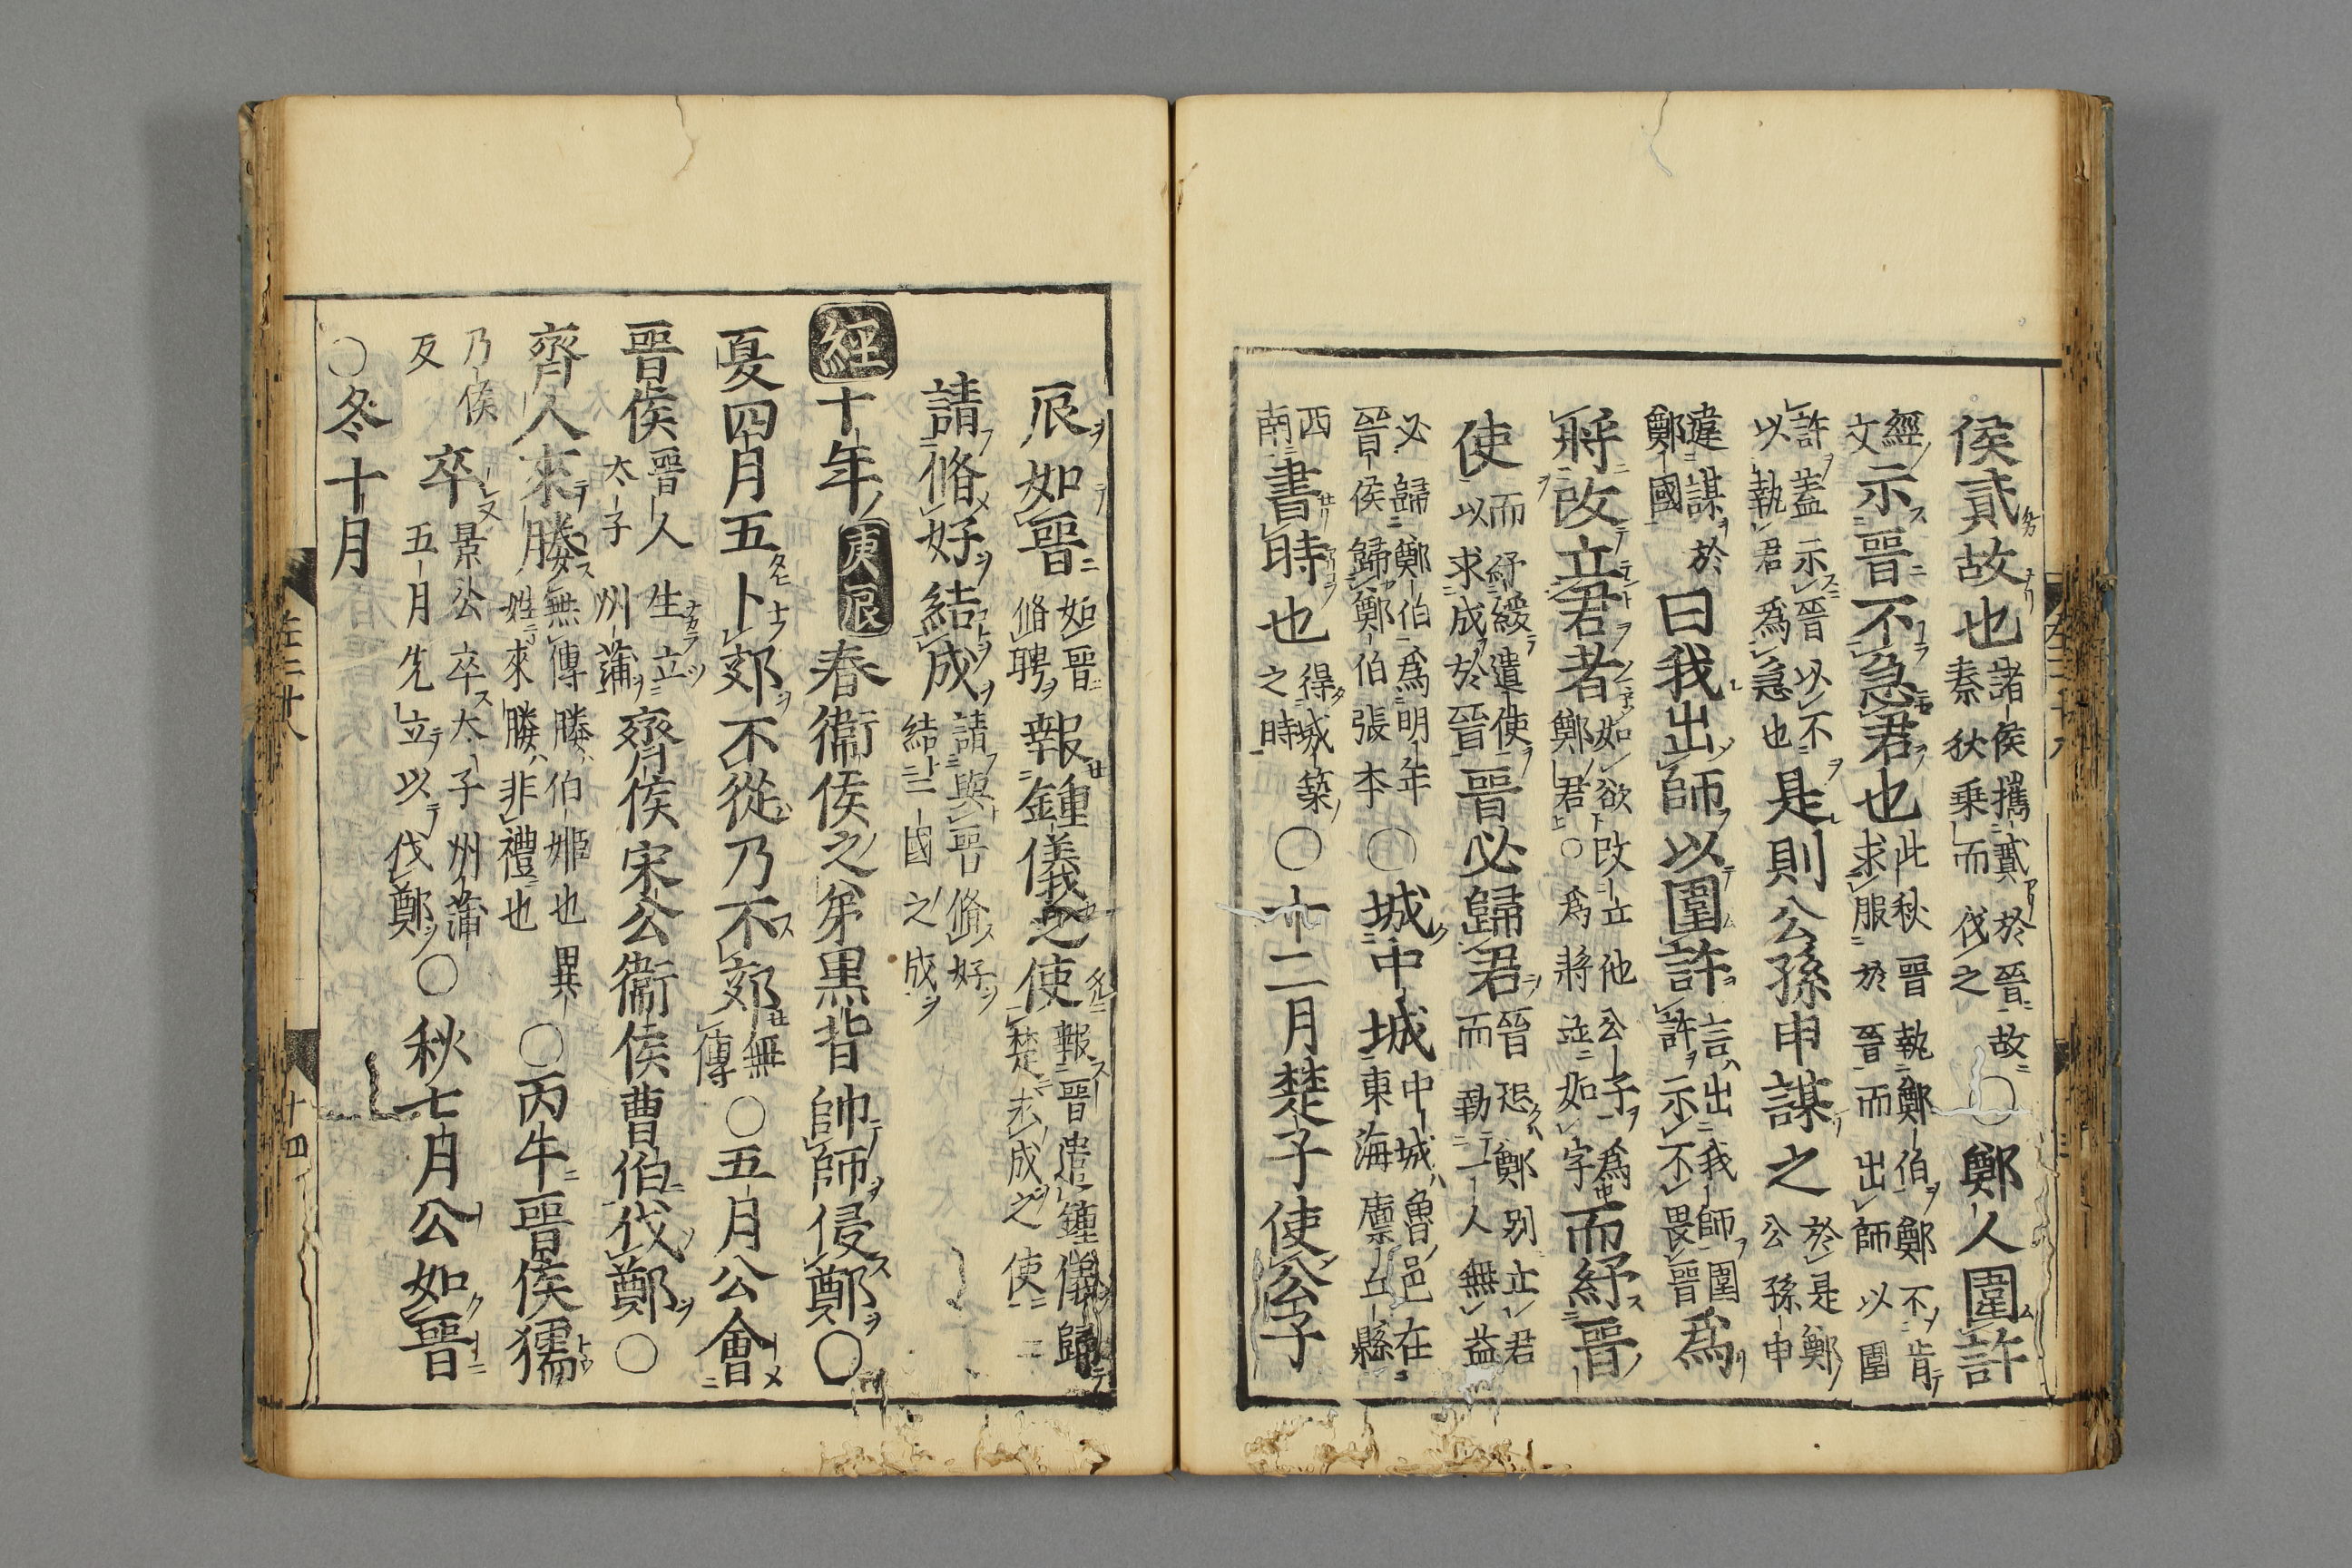 侯貳故也諸侯攜貳於晉故秦狄乗而伐之○鄭人圍許
經文示晉不急君也此秋晉執鄭伯鄭不肯求服於晉而出師以圍
許蓋示晉以不以執君爲急也是則公孫申謀之於是鄭公孫申
違謀於鄭國曰我出師以圍許言出我師圍許示不畏晉爲
將改立君者如欲改立他公子爲鄭君○爲將並如字而紓晉
使而紓緩遣使以求成於晉晉必歸君晉恐鄭別立君而勤一人無益
必歸鄭伯爲明年晉侯歸鄭伯張本○城中城中城魯邑在東海廩丘縣
西南書時也得城築之時○十二月楚子使公子
辰如晉如晉脩聘報鍾儀之使報晉遣鍾儀歸楚求成之使
請脩好結成請與晉脩好結二國之成
經十年庚辰春衞侯之弟黒背帥師侵鄭○
夏四月五卜郊不從乃不郊無傳○五月公會
晉侯晉人生立太子州蒲齊侯宋公衞侯曹伯伐鄭○
齊人來媵無傳媵伯姬也異姓來媵非禮也○丙午晉侯獳
乃侯反卒又景公卒太子州蒲五月先立以伐鄭○秋七月公如晉
○冬十月
十四